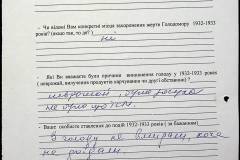 - Чи відомі Вам конкретні місця захоронення жертв Голодомору 1932-1933
років? (якщо так, то де? )
ні
- Які Ви вважаєте були причини виникнення голоду у 1932-1933 роках
( неврожай, вилучення продуктів харчування чи другі обставини? )
неврожай, була засуха
не врожай
- Ваше особисте ставлення до подій 1932-1933 років ( за бажанням)
З голоду не вмирали, хоча
не доїдали